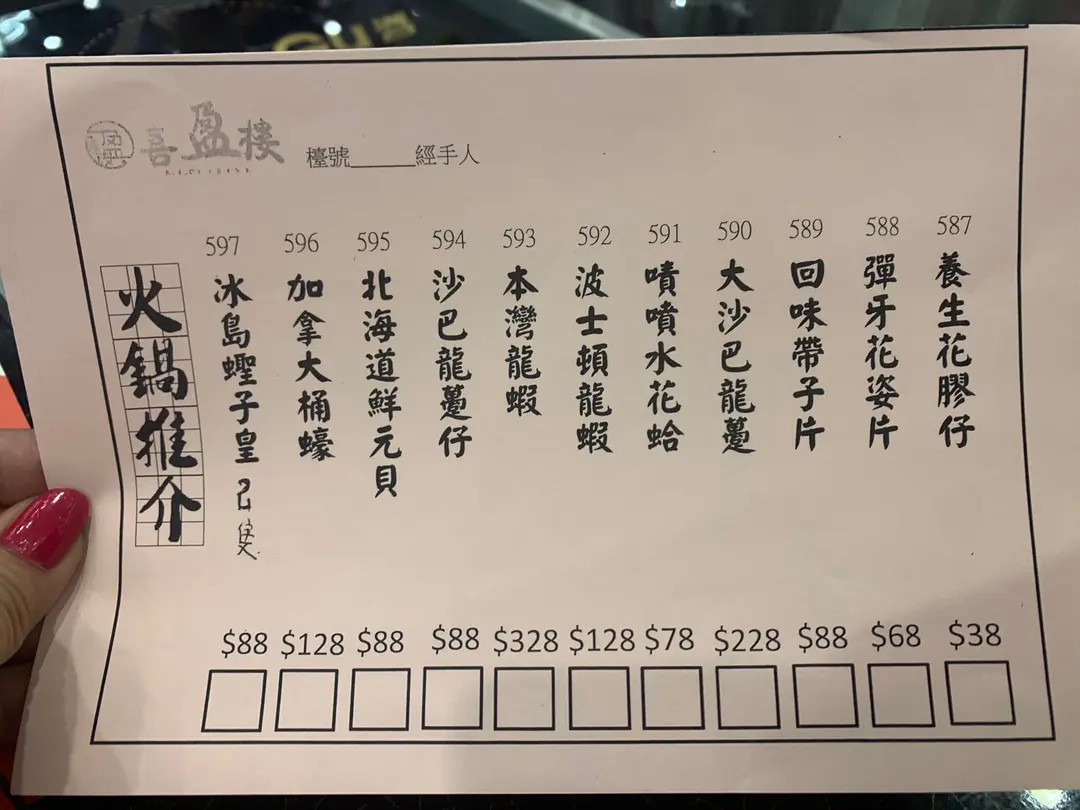 喜盈樓
檯號______經手人
火鍋推介
587
養生花膠仔
$38
588
彈牙花姿片
$68
589
回味帶子片
$88
590
大沙巴龍躉
$228
591
噴噴水花蛤
$78
592
波士頓龍蝦
$128
593
本灣龍蝦
$328
594
沙巴龍躉仔
$88
595
北海道鮮元貝
$88
596
加拿大桶蠔
$128
597
冰島蟶子皇
$88